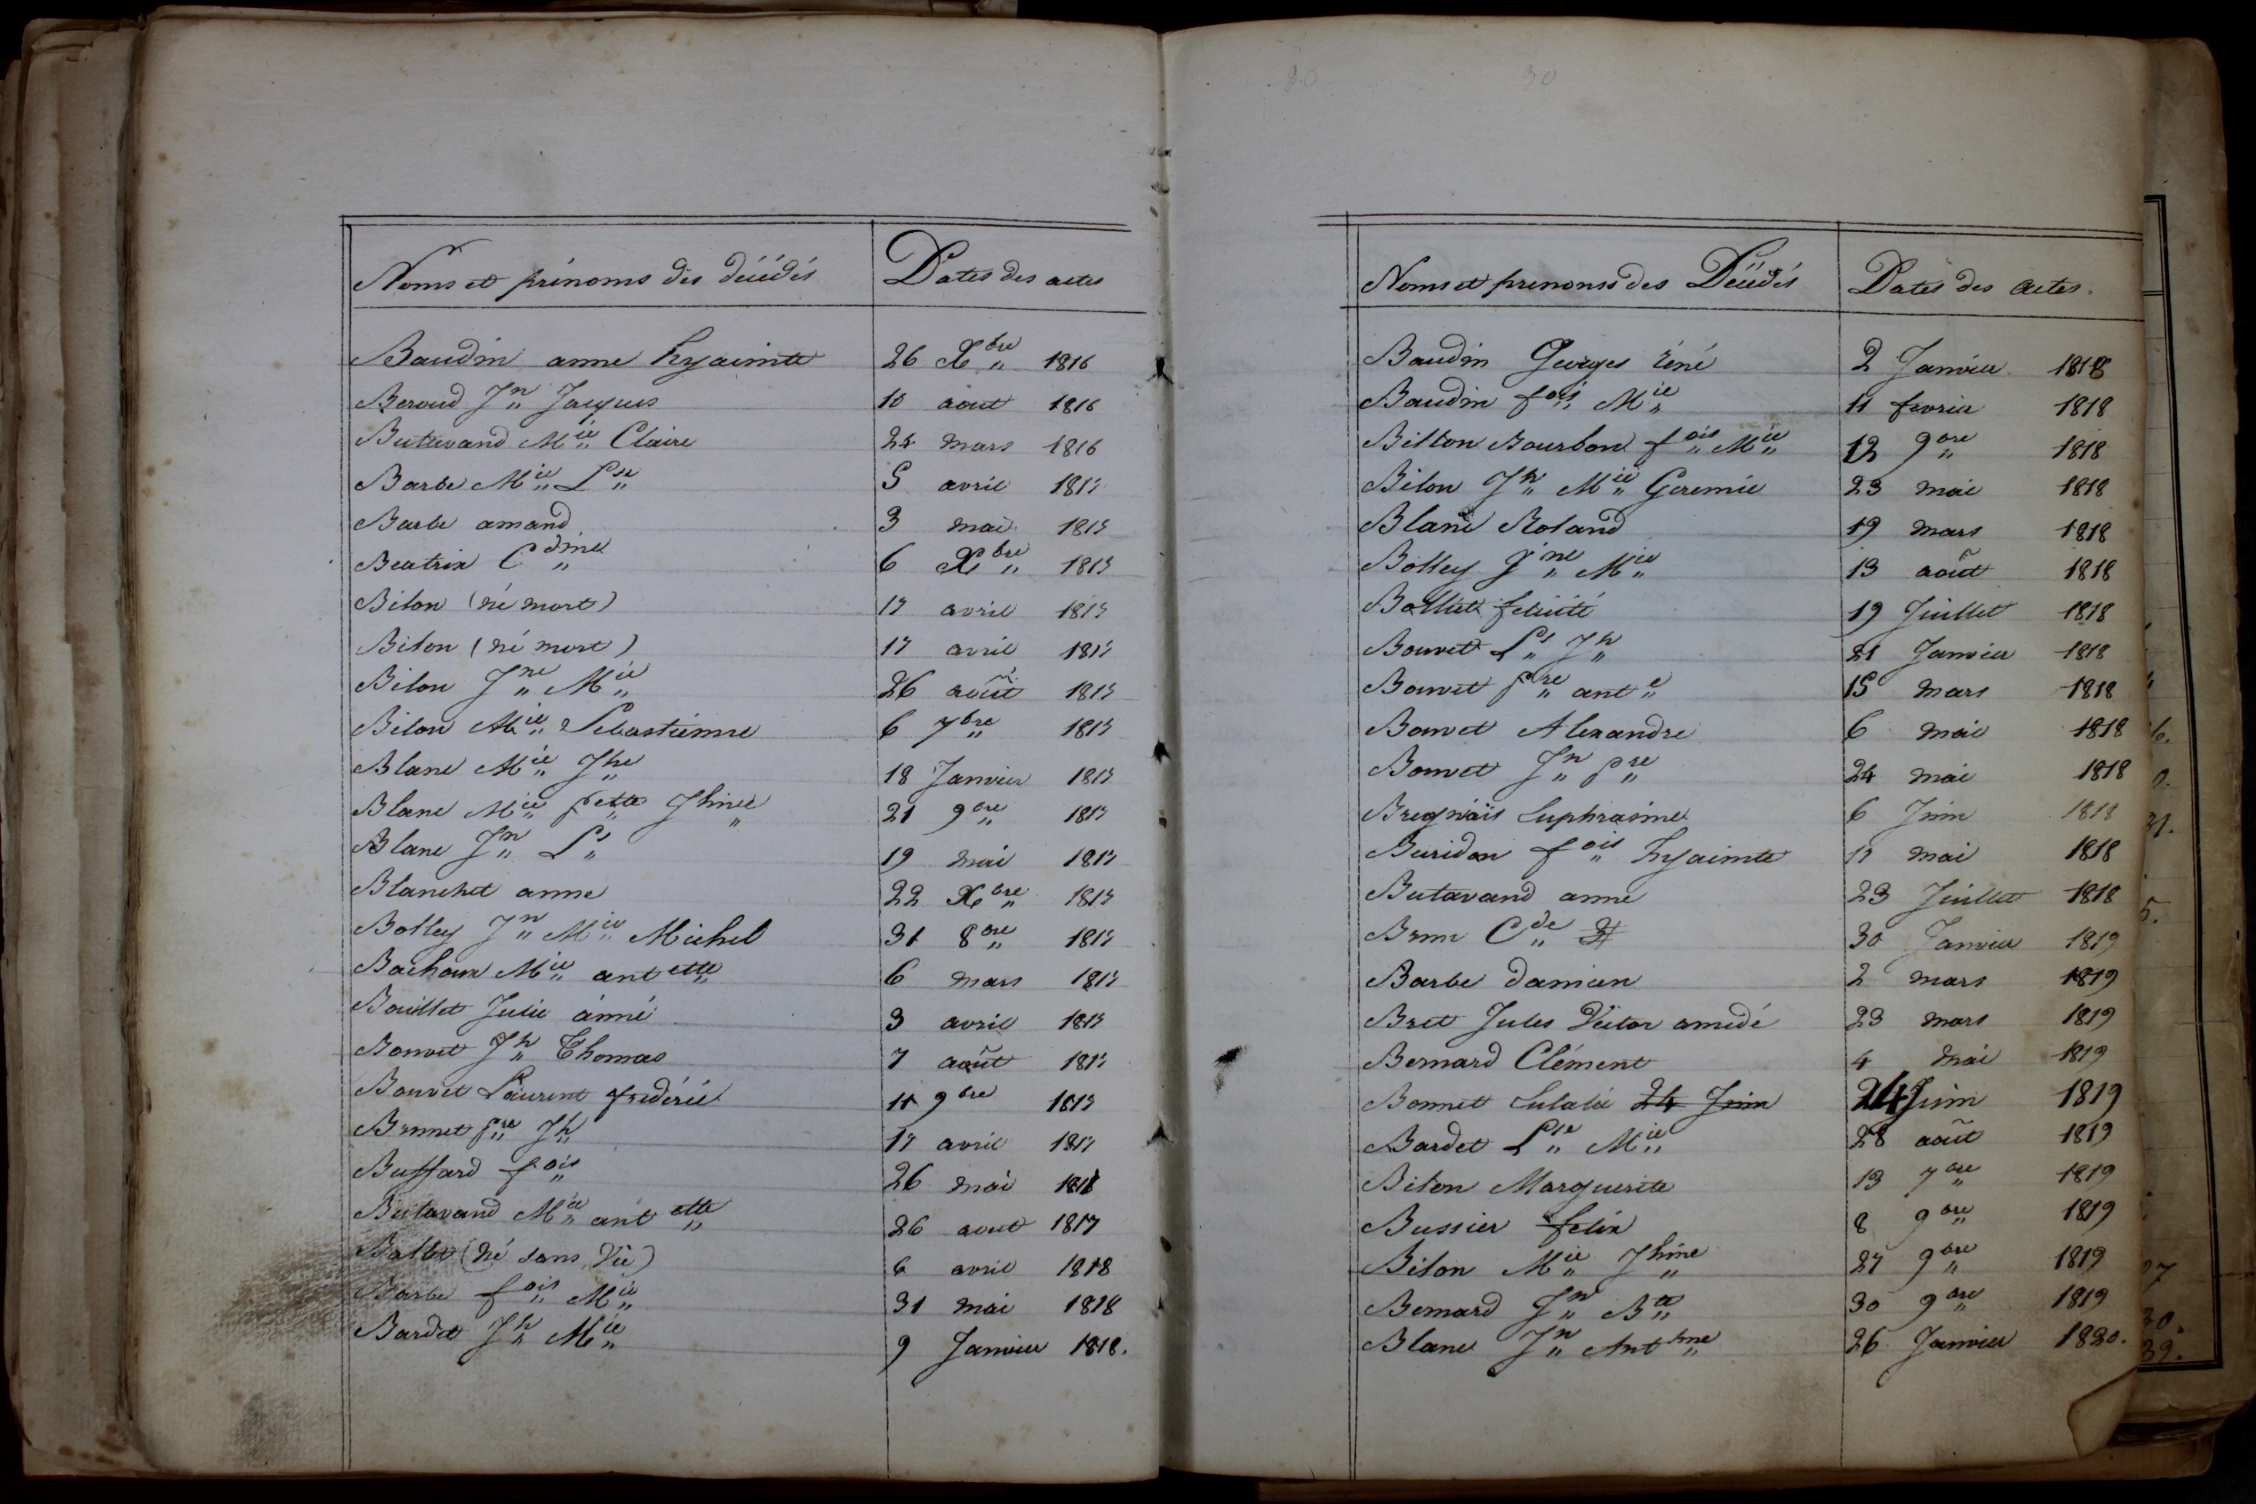 Noms et prénoms des décédés Dates des actes
Baudin anne hyacinte 26 Xbre 1816
Beroud Jn Jacques 10 aout 1816
Butavand Mie Claire 24 mars 1816
Barbe Mie Lse 5 avril 1817
Barbe amand 3 mai 1817
Beatrix Cdine 6 Xbre 1817
Bilon (né mort) 17 avril 1817
Bilon (né mort) 17 avril 1817
Bilon Jne Mie 26 août 1817
Bilon Mie Sebastienne 6 7bre 1817
Blanc Mie Jhe 18 Janvier 1817
Blanc Mie pette Jhine 21 9bre 1817
Blanc Jn Ls 19 mai 1817
Blanchet anne 22 Xbre 1817
Bolley Jn Mie Michel 31 8bre 1817
Bachoux Mie antette 6 mars 1817
Bouillet Julie anné 3 avril 1817
Bonvet Jh Thomas 7 août 1817
Bouvet Laurent frédéric 11 9bre 1817
Brunet pre Jh 17 avril 1817
Buffard fois 26 mai 1817
Butavand Mie antette 26 aout 1817
Ballet (né sans vie) 6 avril 1818
Barbe fois Mie 31 mai 1818
Bardet Jh Mie 9 Janvier 1818.
Noms et prenoms des Décédés Dates des actes.
Baudin Georges réné 2 Janvier 1818
Baudin fois Mie 11 fevrier 1818
Billon Bourbon fois Mie 12 9bre 1818
Bilon Jh Mie Geremie 23 mai 1818
Blanc Roland 19 mars 1818
Bolley Jne Mie 13 août 1818
Bolliet felicité 19 Juillet 1818
Bouvet Ls Jh 21 Janvier 1818
Bouvet pre ante 15 mars 1818
Bouvet Alexandre 6 mai 1818
Bouvet Jn pre 24 mai 1818
Bregnais Euphrasine 6 Juin 1818
Buridon fois hyacinte 11 mai 1818
Butavand anne 23 Juillet 1818
Brun Cde 30 Janvier 1819
Barbe Damien 2 mars 1819
Bret Jules Victor amedé 23 mars 1819
Bernard Clément 4 mai 1819
Bonnet Eulalie 24 Juin 24 Juin 1819
Bardet Lse Mie 28 août 1819
Bilon Marguerite 13 7bre 1819
Bussier felix 8 9bre 1819
Bilon Mie Jhine 27 9bre 1819
Bernard Jn Bte 30 9bre 1819
Blanc Jn Anthme 26 Janvier 1820.